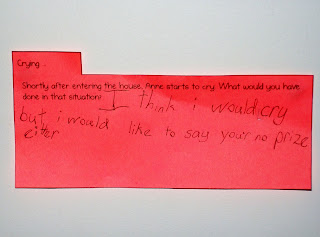 Crying .
Shortly after entering the house, Anne starts to cry. What would you have
done in that situation? I think i would cry
but i would like to say your no prize
eitter